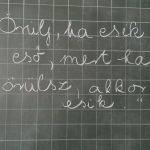 Örülj, ha esik
eső, mert ha
örülsz, akkor
esik."